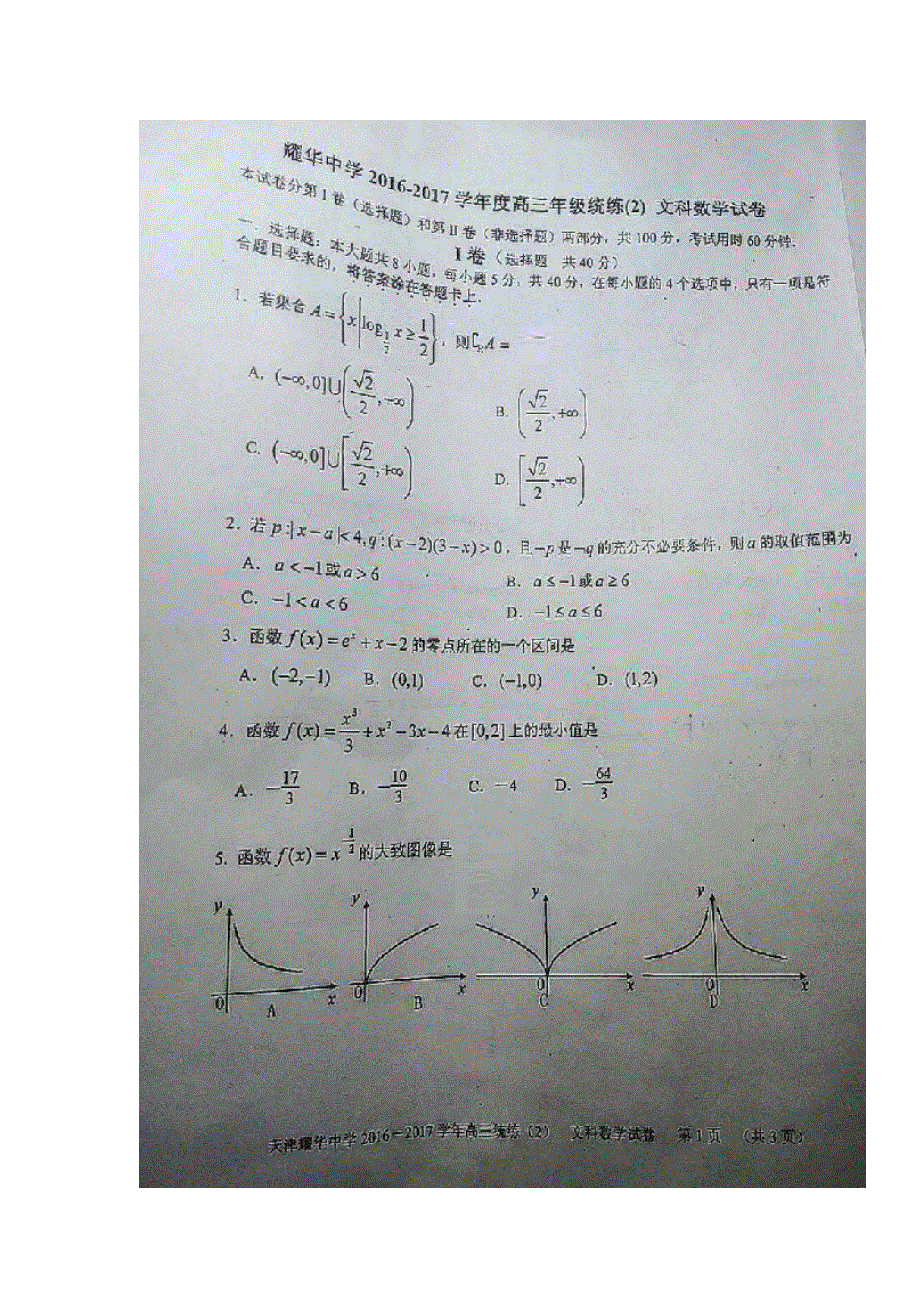 耀华中学 2016-2017 学年度高三年级统练(2) 文科数学试卷
本试卷分第 I 卷（选择题）和第 II 卷（非选择题）两部分，共 100 分，考试用时 60 分钟.
I 卷（选择题 共 40 分）
一．选择题：本大题共 8 小题，每小题 5 分，共 40 分，在每小题的 4 个选项中，只有一项是符
合题目要求的，将答案涂在答题卡上.
1．若集合 A = {x | log_{1/2} x ≥ 1/2}，则 ∁_R A =
A. (−∞,0]∪(√2/2,+∞) B. (√2/2,+∞)
C. (−∞,0]∪[√2/2,+∞) D. [√2/2,+∞)
2．若 p:|x−a|<4, q:(x−2)(3−x)>0，且 ¬p 是 ¬q 的充分不必要条件，则 a 的取值范围为
A. a<−1或a>6 B. a≤−1或a≥6
C. −1<a<6 D. −1≤a≤6
3．函数 f(x)=e^x+x−2 的零点所在的一个区间是
A. (−2,−1) B. (0,1) C. (−1,0) D. (1,2)
4．函数 f(x)=x³/3+x²−3x−4 在 [0,2] 上的最小值是
A. −17/3 B. −10/3 C. −4 D. −64/3
5. 函数 f(x)=x^{-1/2} 的大致图像是
y y y y
0 x 0 x 0 x 0 x
A B C D
天津耀华中学 2016－2017 学年高三统练（2） 文科数学试卷 第 1 页 （共 3 页）